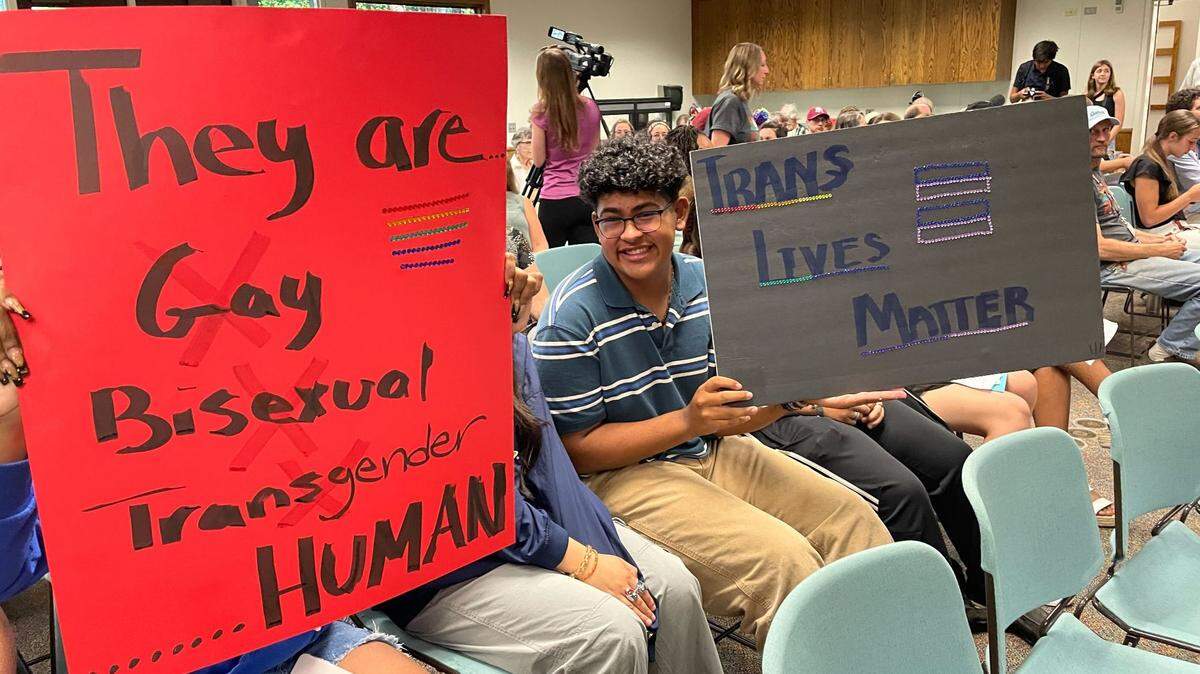 They are...
Gay
Bisexual
Transgender
......HUMAN
TRANS
LIVES
MATTER